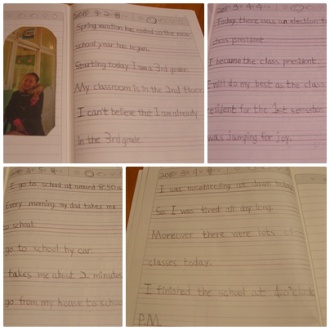 Spring vacation has ended so the new
school year has begun.
Starting today I am a 3rd grade.
My classroom is in the 2nd
I can't believe that I am already
in the 3rd grade.
Today there was an election
class president
I became the class president
will do my best as the class
president for the 1st semester
was jumping for joy.
I go to school at around 8:50
Every morning my dad takes me
to school.
go to school by car.
takes me about 2 minutes
go from my house to school
I was
So I was tired all day long.
Moreover there were lots of
classes today.
I finished the school at
P.M.